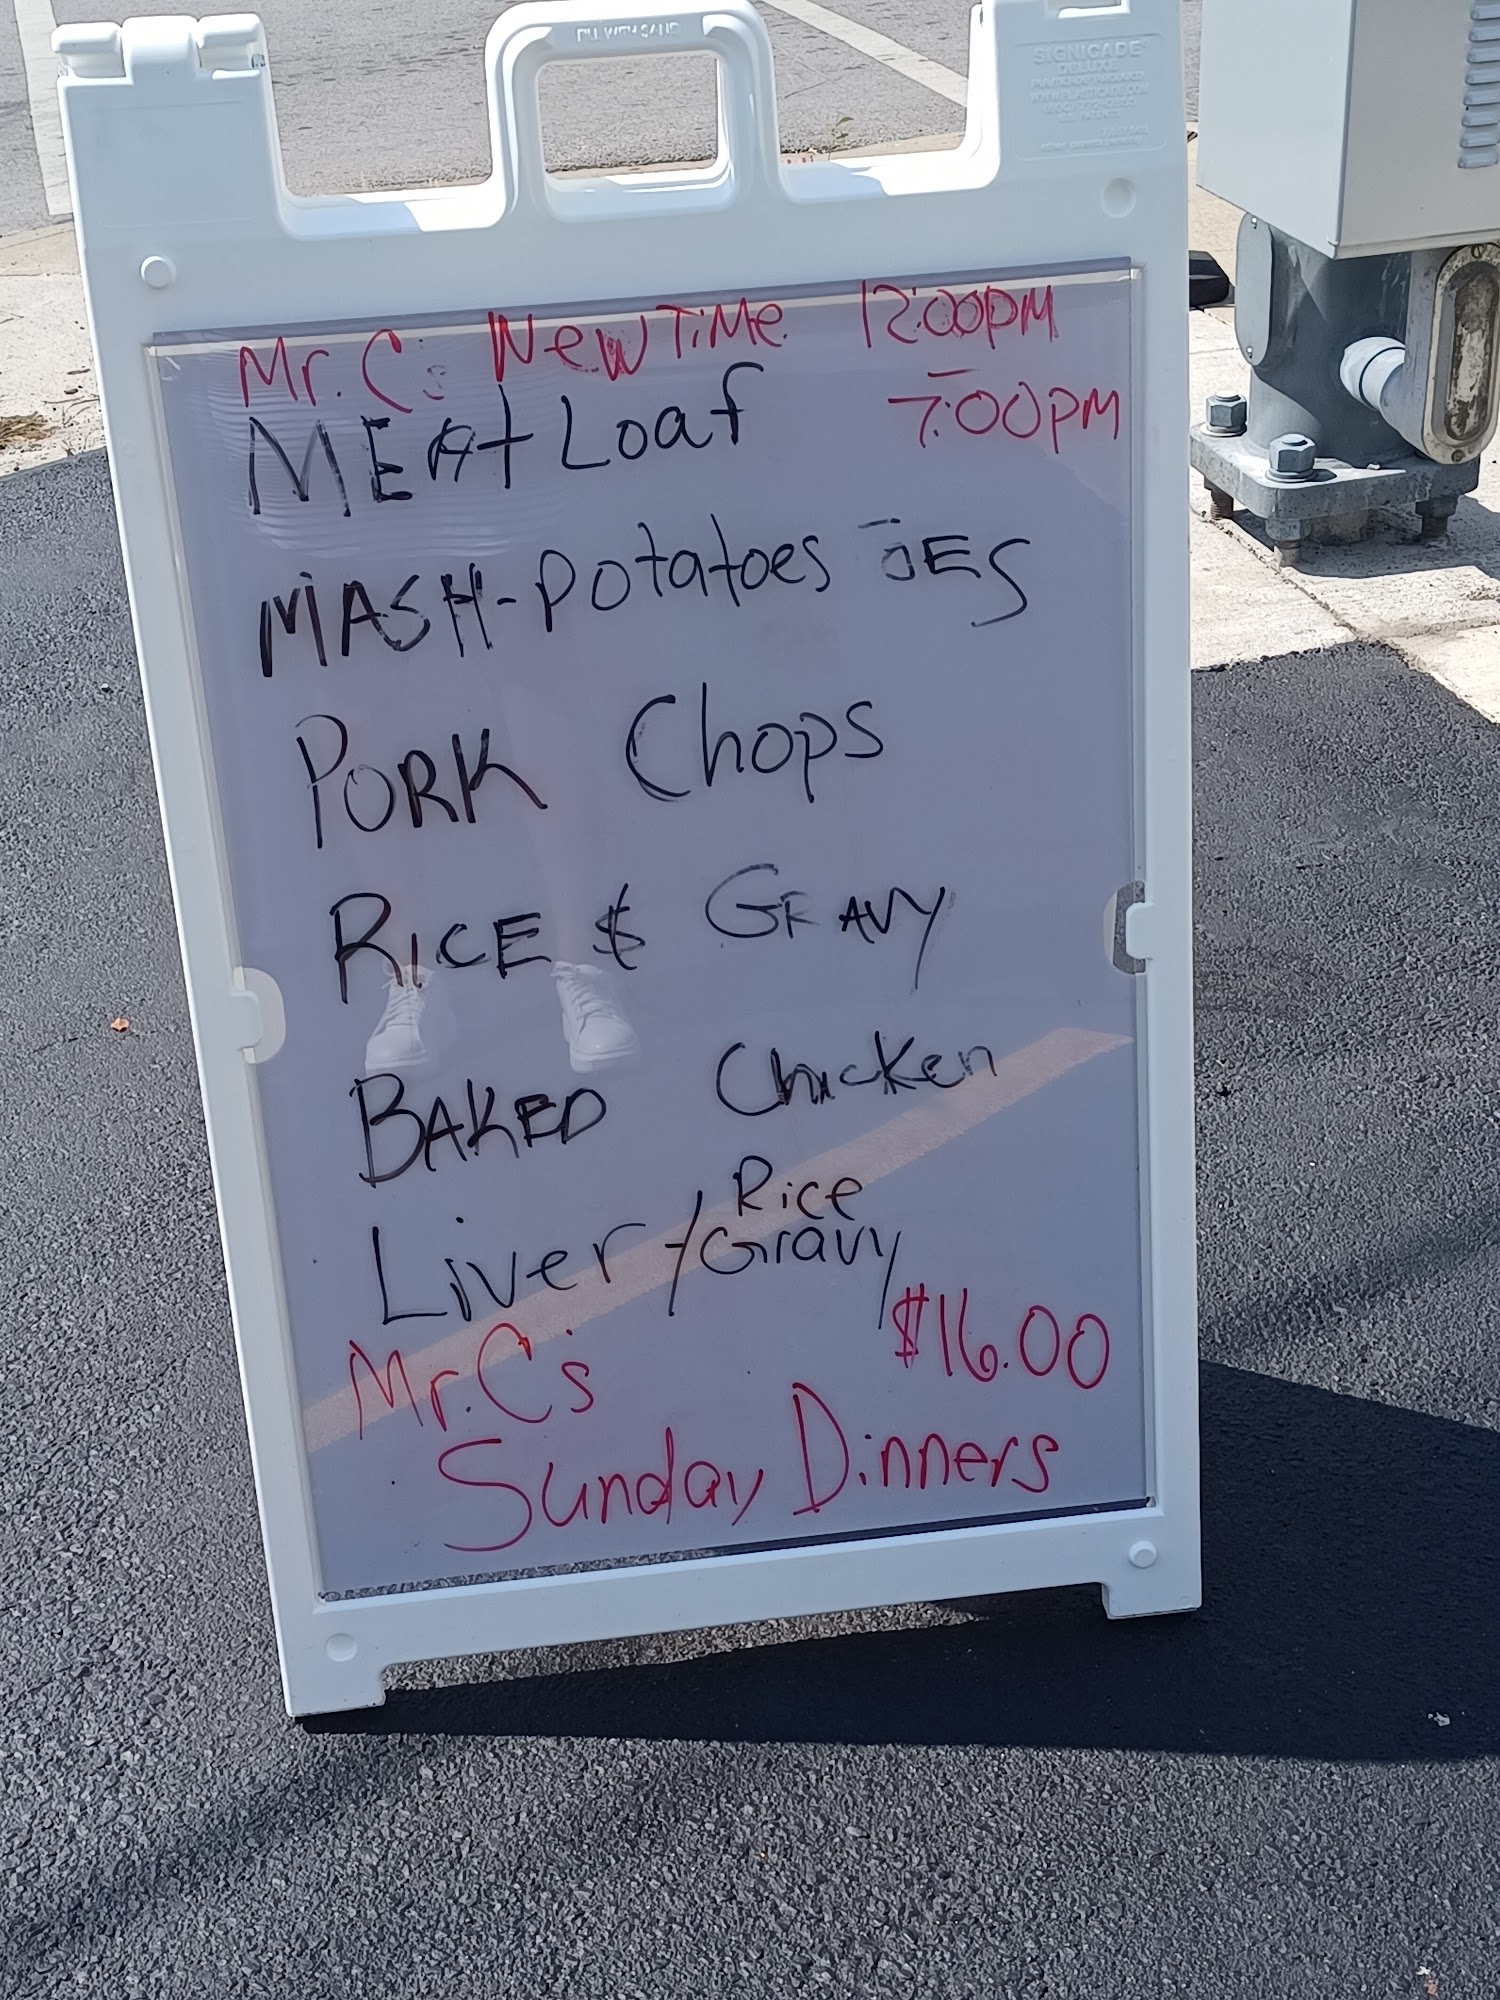 FILL WITH SAND
SIGNICADE
DELUXE
Mr. C's New TiMe 12:00pm
- 7:00pm
MEAt Loaf
MASH-potatoes
PORK Chops
RICE & GRAVY
BAKED Chicken
Liver / Rice
Gravy
$16.00
Mr. C's
Sunday Dinners